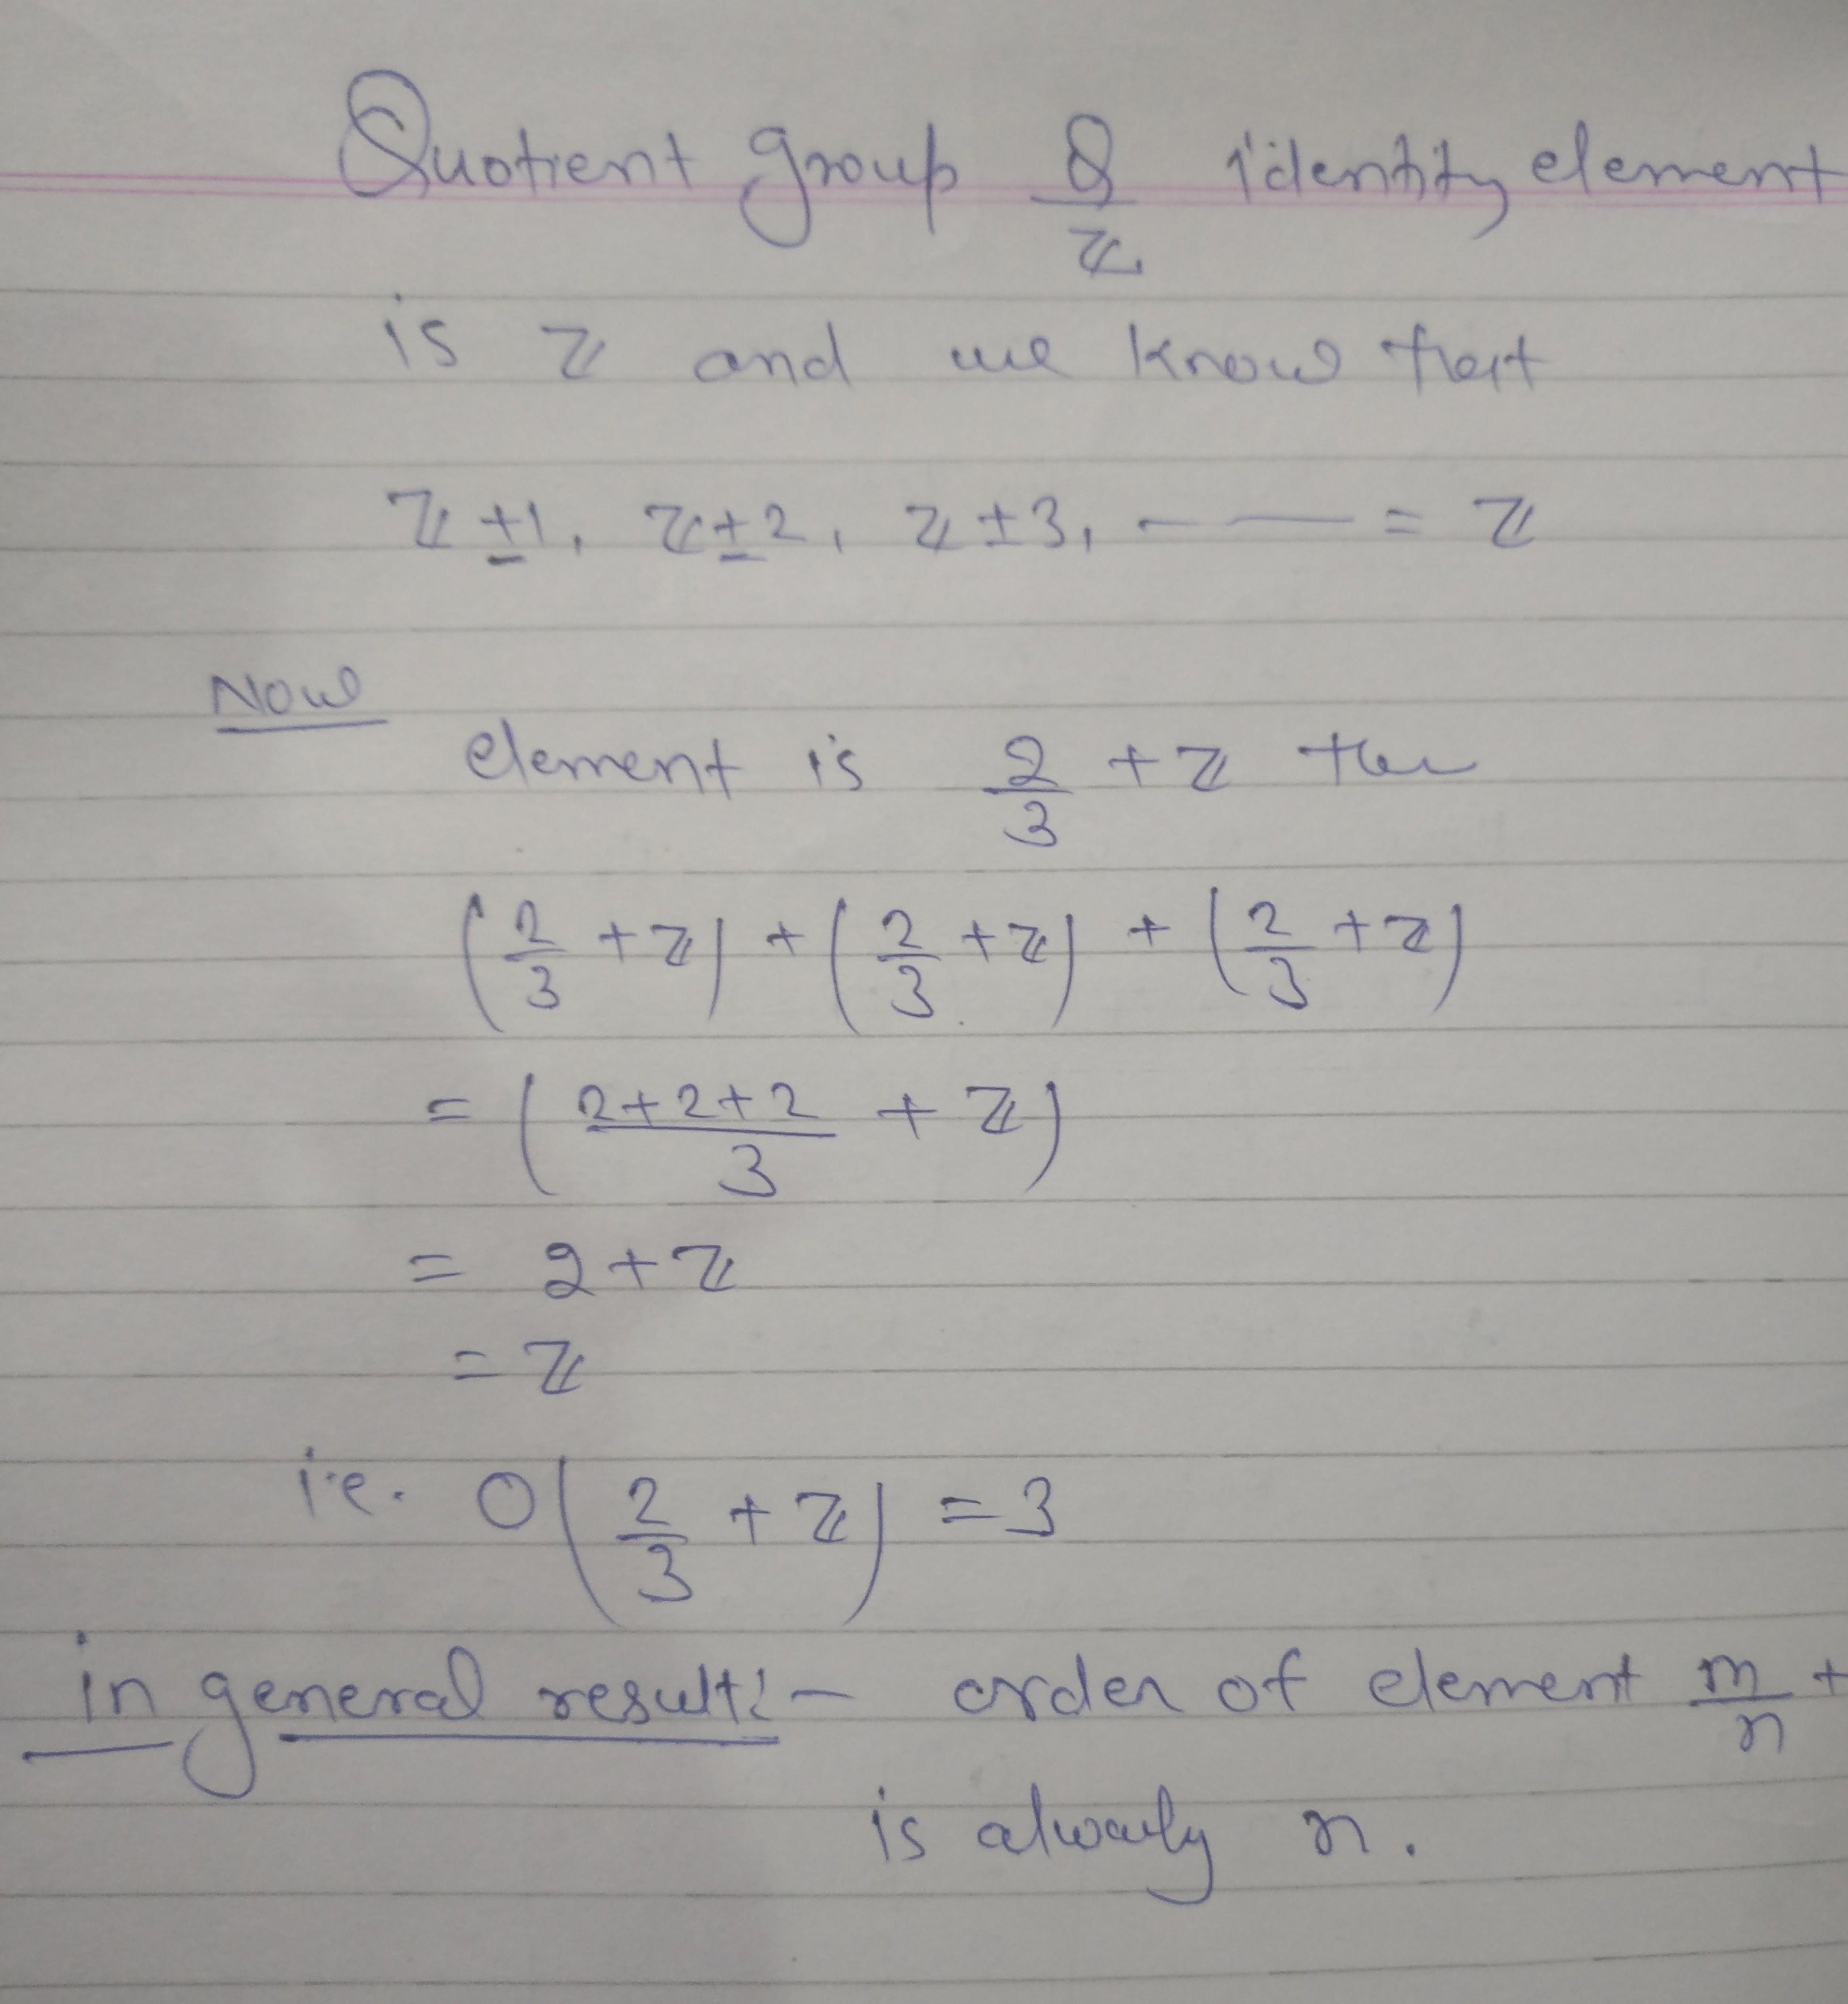 Quotient group Q/ℤ identity element
is ℤ and we know that
ℤ±1, ℤ±2, ℤ±3, — — = ℤ
Now
element is 2/3 + ℤ the
(2/3 + ℤ) + (2/3 + ℤ) + (2/3 + ℤ)
= ((2+2+2)/3 + ℤ)
= 2+ℤ
= ℤ
i.e. O(2/3 + ℤ) = 3
in general result:- order of element m/n +
is alwaly n.